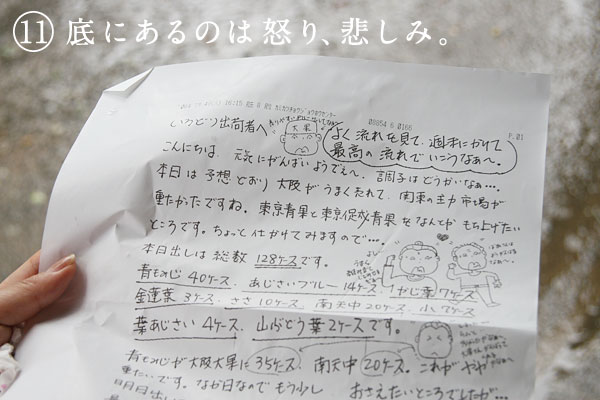 ⑪ 底にあるのは怒り、悲しみ。
P.01
いろどり出荷者へ
大果
よく流れを見て、週末にかけて
最高の流れでいこうなぁ〜。
こんにちは、元気にがんばいようでぇへ。調子はどうかいなぁ…。
本日は予想どおり大阪がうまくたれて、関東の主力市場が
重たかったですね。東京青果と東京促成青果をなんとかもち上げたい
ところです。ちょっと仕かけてみますので…。
本日出しは総数 128ケースです。
青もみじ 40ケース、あじさいブルー 14ケース、かじ葉 7ケース
金蓮葉 3ケース、ささ 10ケース、南天中 20ケース、小
葉あじさい 4ケース、山ぶどう葉 2ケースです。
青もみじが大阪大果に 35ケース、南天中 20ケース。これがやや
重たいです。なか日なのでもう少し おさえたいところでしたが…